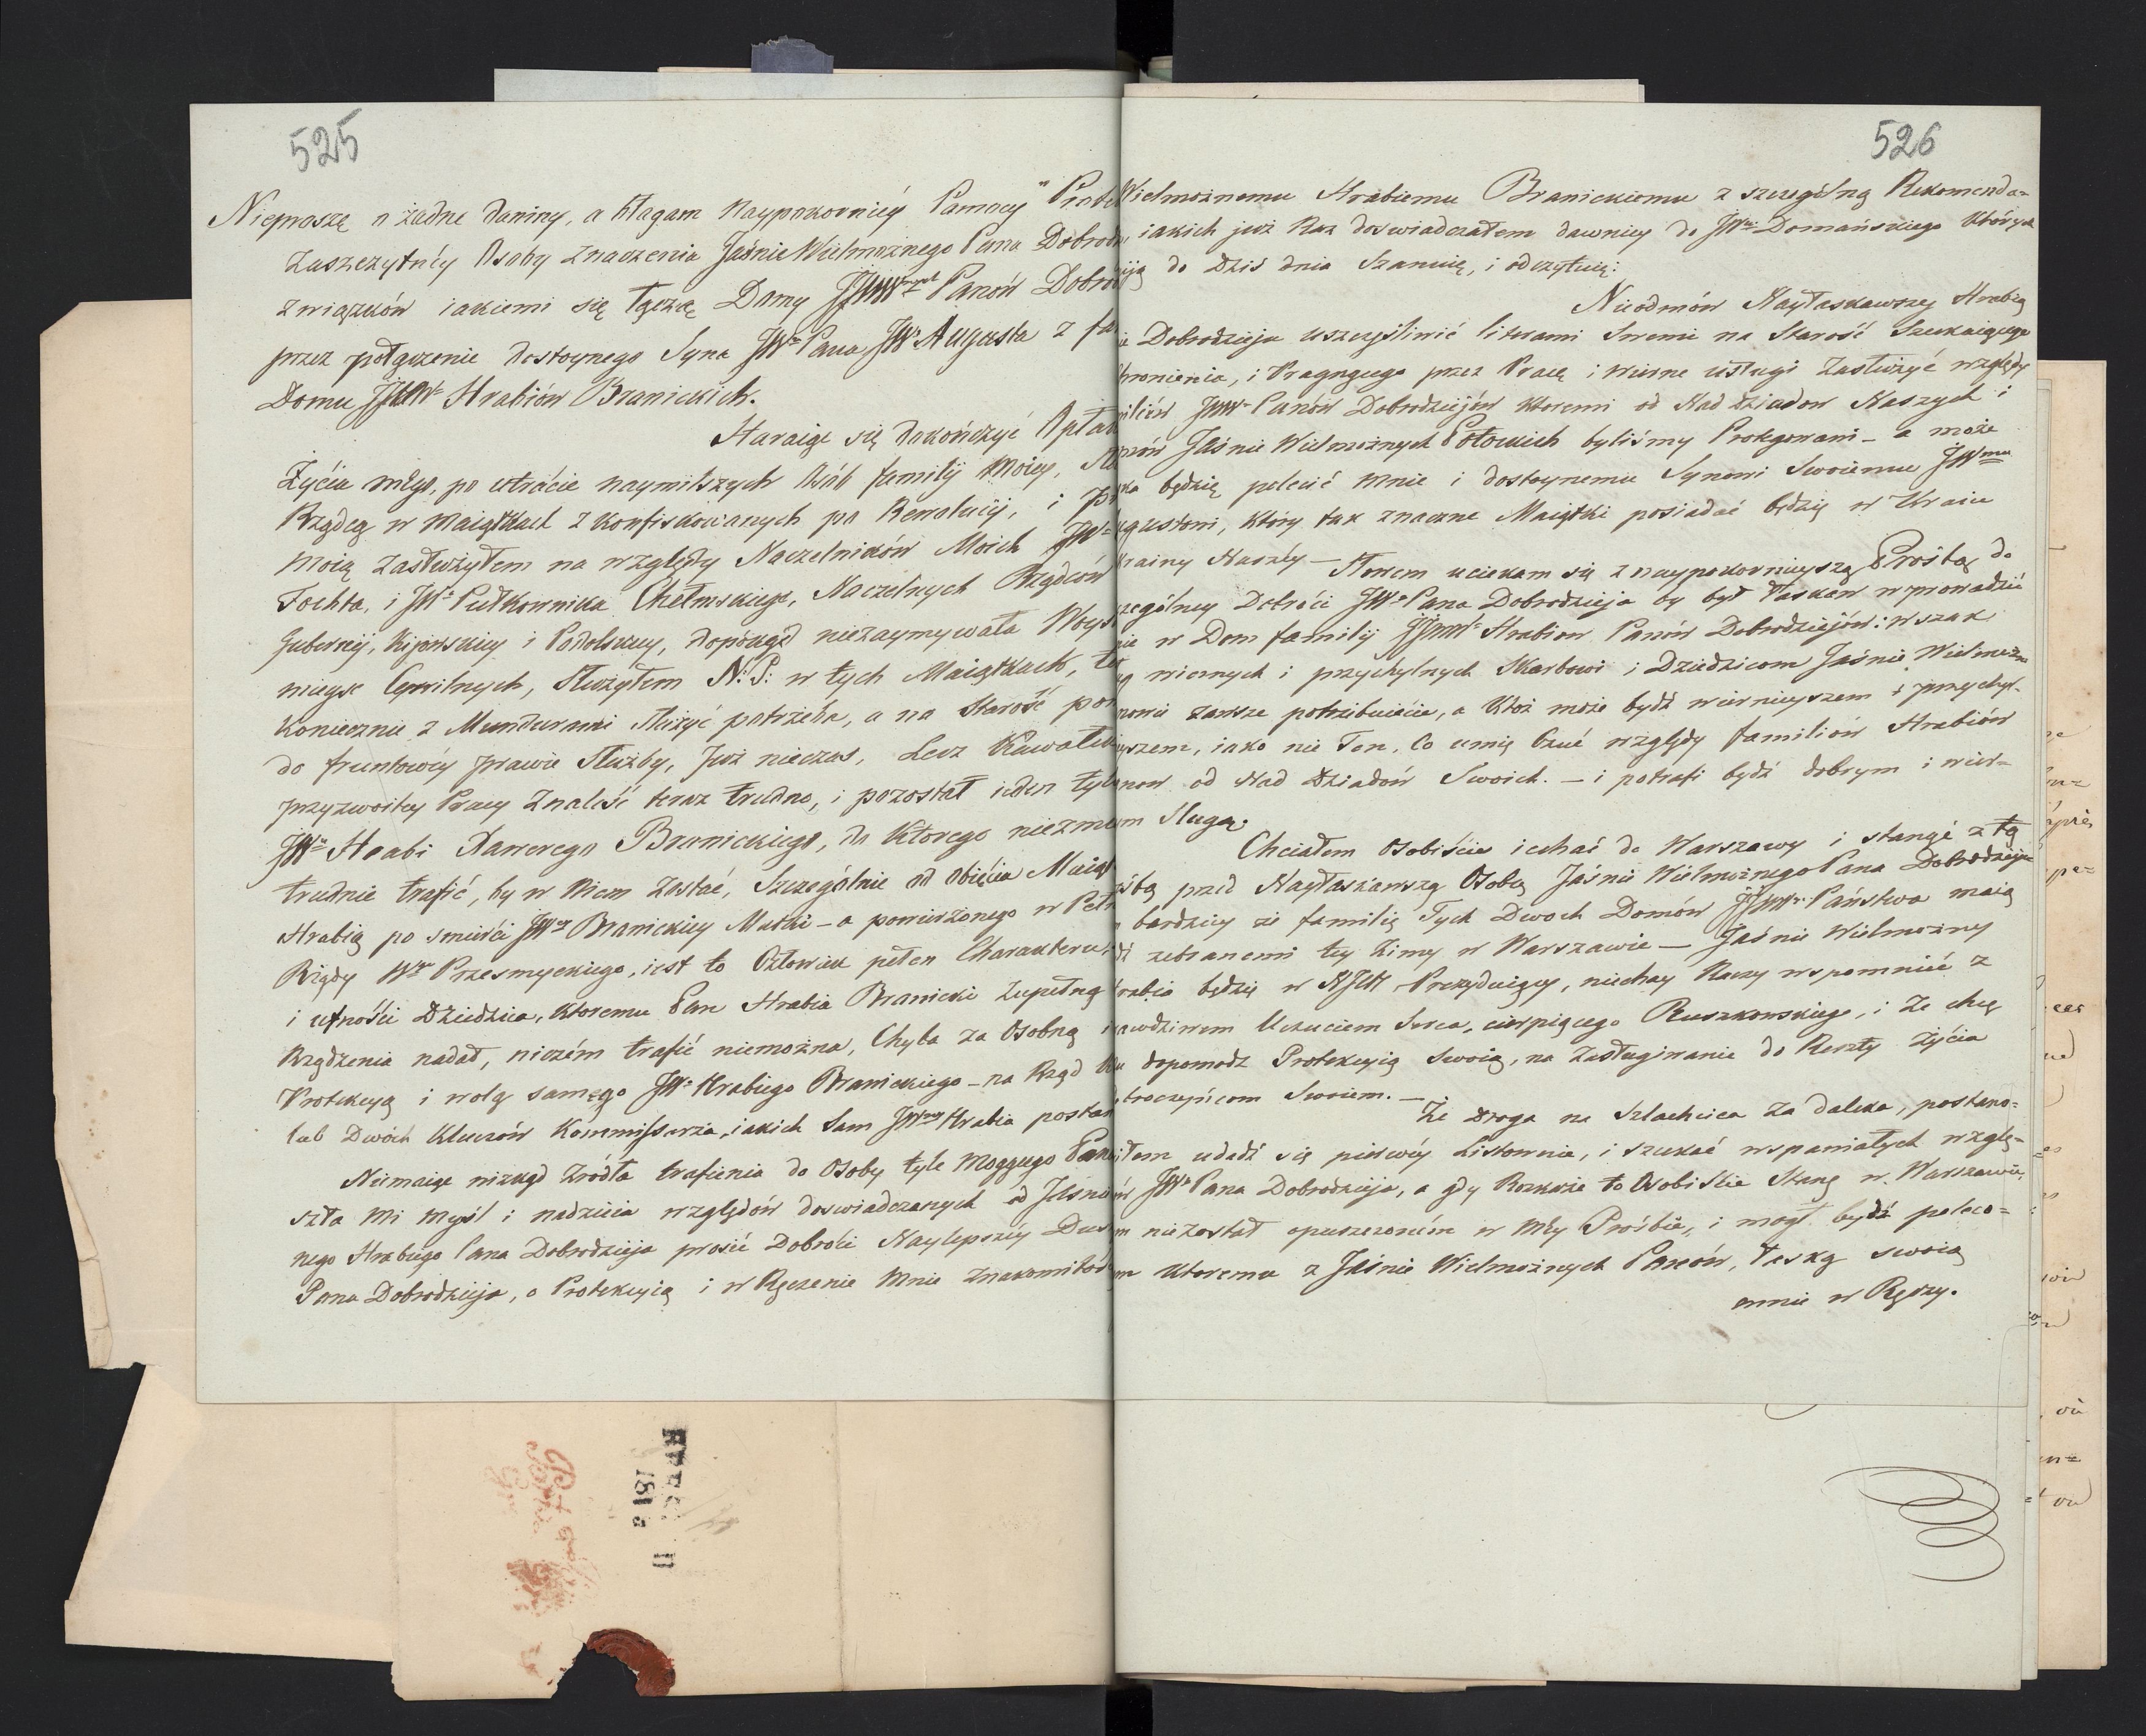 525
Nieproszę o żadne daniny, a błagam Naypokornićy Pamocy "Prote
Zaszczytnéy Osoby Znaczenia JaśnieWielmożnego Pana Dobrodz
związków iakiemi się łączą Damy Panów Dobrod
przez połączenie dostoynego Syna JWo Pana JWo Augusta z fa
Domu Hrabiów Branickich.
Staraiąc się dokończyć Opłak
Życia mego, po utracie naymilszych Osób familij Moiey,
Rządcą w Maiątkach z konfiskowanych po Rewolucij, i
Moią zasłużyłem na względy Naczelników Moich JW
Fochta, i JWo Pułkownika Chełmskiego, Naczelnych Rządców
Gubernij, Kijowskiey i Podolskiey, dopokąd niezaymywała Woys
mieysc Cywilnych, Służyłem N: P: w tych Maiątkach,
koniecznie z Mundurami Służyć potrzeba, a na Starość
do fruntowéy prawie Służby, Już nieczas, Lecz Kawałek
przyzwoitey Pracy Znaleść teraz trudno, i pozostał ieden tyl
Hrabi Xawerego Branickiego, do którego niezm
trudnie trafić, by w Niem Zostać, Szczególnie od Obięcia Maiąt
Hrabią po smierci Branickiey Matki – a powierzonego w Peł
Rządy Przesmyckiego, iest to Człowiek pełen Charakteru,
i ufności Dziedzica, Ktoremu Pan Hrabia Branicki zupełną
Rządzenia nadał, niczém trafić niemożna, Chyba za Osobną
Protekcyą i wolą samego JWo Hrabiego Branickiego – na Rząd
lub Dwóch Kluczów Kommissarza, iakich Sam Hrabia postan
Niemaiąc nizkąd źródła trafienia do Osoby tyle Mogącego Pan
szła Mi Myśl i nadzieia względów doswiadczanych od Jaśnie
nego Hrabiego Pana Dobrodzieja prosić Dobroci Naylepszéy Dus
Pana Dobrodzieja, o Protekcyią i w Ręczenie Mnie Znakomitos
526
Wielmożnemu Hrabiemu Branickiemu z szczególną Rekomenda=
iakich już Raz doswiadczałem dawniey do Domańskiego Których
do Dziś dnia Szanuię, i odczytuię:
Nieodmów Nayłaskawszy Hrabią
Dobrodzieju uszczęśliwić literami Swemi na Starość Szukaiącego
hronienia, i Pragnącego przez Pracę i wierne usługi Zasłużyć względy
miliów Panów Dobrodziejów ktoremi od Nad dziadow Naszych i
Jaśnie Wielmożnych Potockich byliśmy Protegowani – a może
będzię polecić mnie i dostoynemu Synowi Swoiemu
gustowi, który tak znaczne Maiątki posiadać będzię w Kraiu
krainy Naszéy – Słowem uciekam się z naypokornieyszą Prośbą do
zególney Dobroci JWo Pana Dobrodzieja by był łaskaw wprowadzić
w Dom familij Hrabiow Panów Dobrodziejów: wszak
wiernych i przychylnych Skarbowi i Dziedzicom Jaśnie Wielmożn
nowie zawsze potrzebuiecie, a Któż może bydź wiernieyszem i przychyl-
szem, iako nie Ten, Co umię Czuć względy familiów Hrabiów
nów od Nad Dziadów Swoich. – i potrafi bydź dobrym i wier-
m Sługą.
Chciałem Osobiście iechać do Warszawy i stanąć z tą
śbą przed Nayłaskawszą Osobą Jaśnie WielmożnegoPana Dobrodzieja
bardziey że familię Tych Dwoch Domów Państwa maią
dź zebranemi tey Zimy w Warszawie – Jaśnie Wielmożny
rabia będzię w Prezyduiący, niechay Raczy wspomnieć z
rawdziwem Uczuciem Serca, cierpiącego Ruszkowskiego, i że chcę
dopomodz Protekcyią Swoią, na zasługiwanie do Reszty Życia
broczyńcom Swoiem. –
Że Droga na Szlachcica za daleka, postano=
iłem udadź się pierwéy Listownie, i szukać wspaniałych wzglę=
ów JWo Pana Dobrodzieja, a gdy Rozkaże to Osobiście Stanę w Warszawie,
niezostał opuszczoném w Méy Prośbie, i mogł bydź poleco=
m ktoremu z Jaśnie Wielmożnych Panów, łaską swoią
mnie w Ręczy.